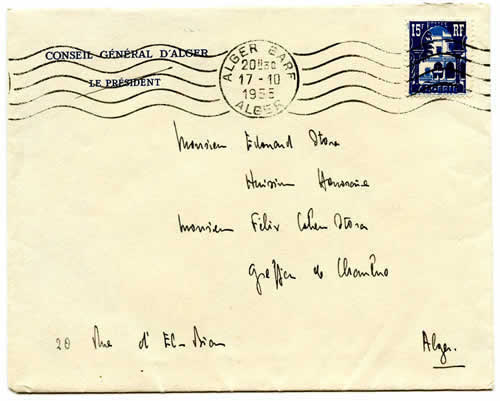 CONSEIL GÉNÉRAL D'ALGER
LE PRÉSIDENT
ALGER BARF
20H30
17-10
1955
ALGER
15F RF
ALGERIE
Monsieur Edouard Stora
Huissier Honoraire
Monsieur Félix Cohen Stora
Greffier de Chambre
20 Rue d'El-Biar
Alger.